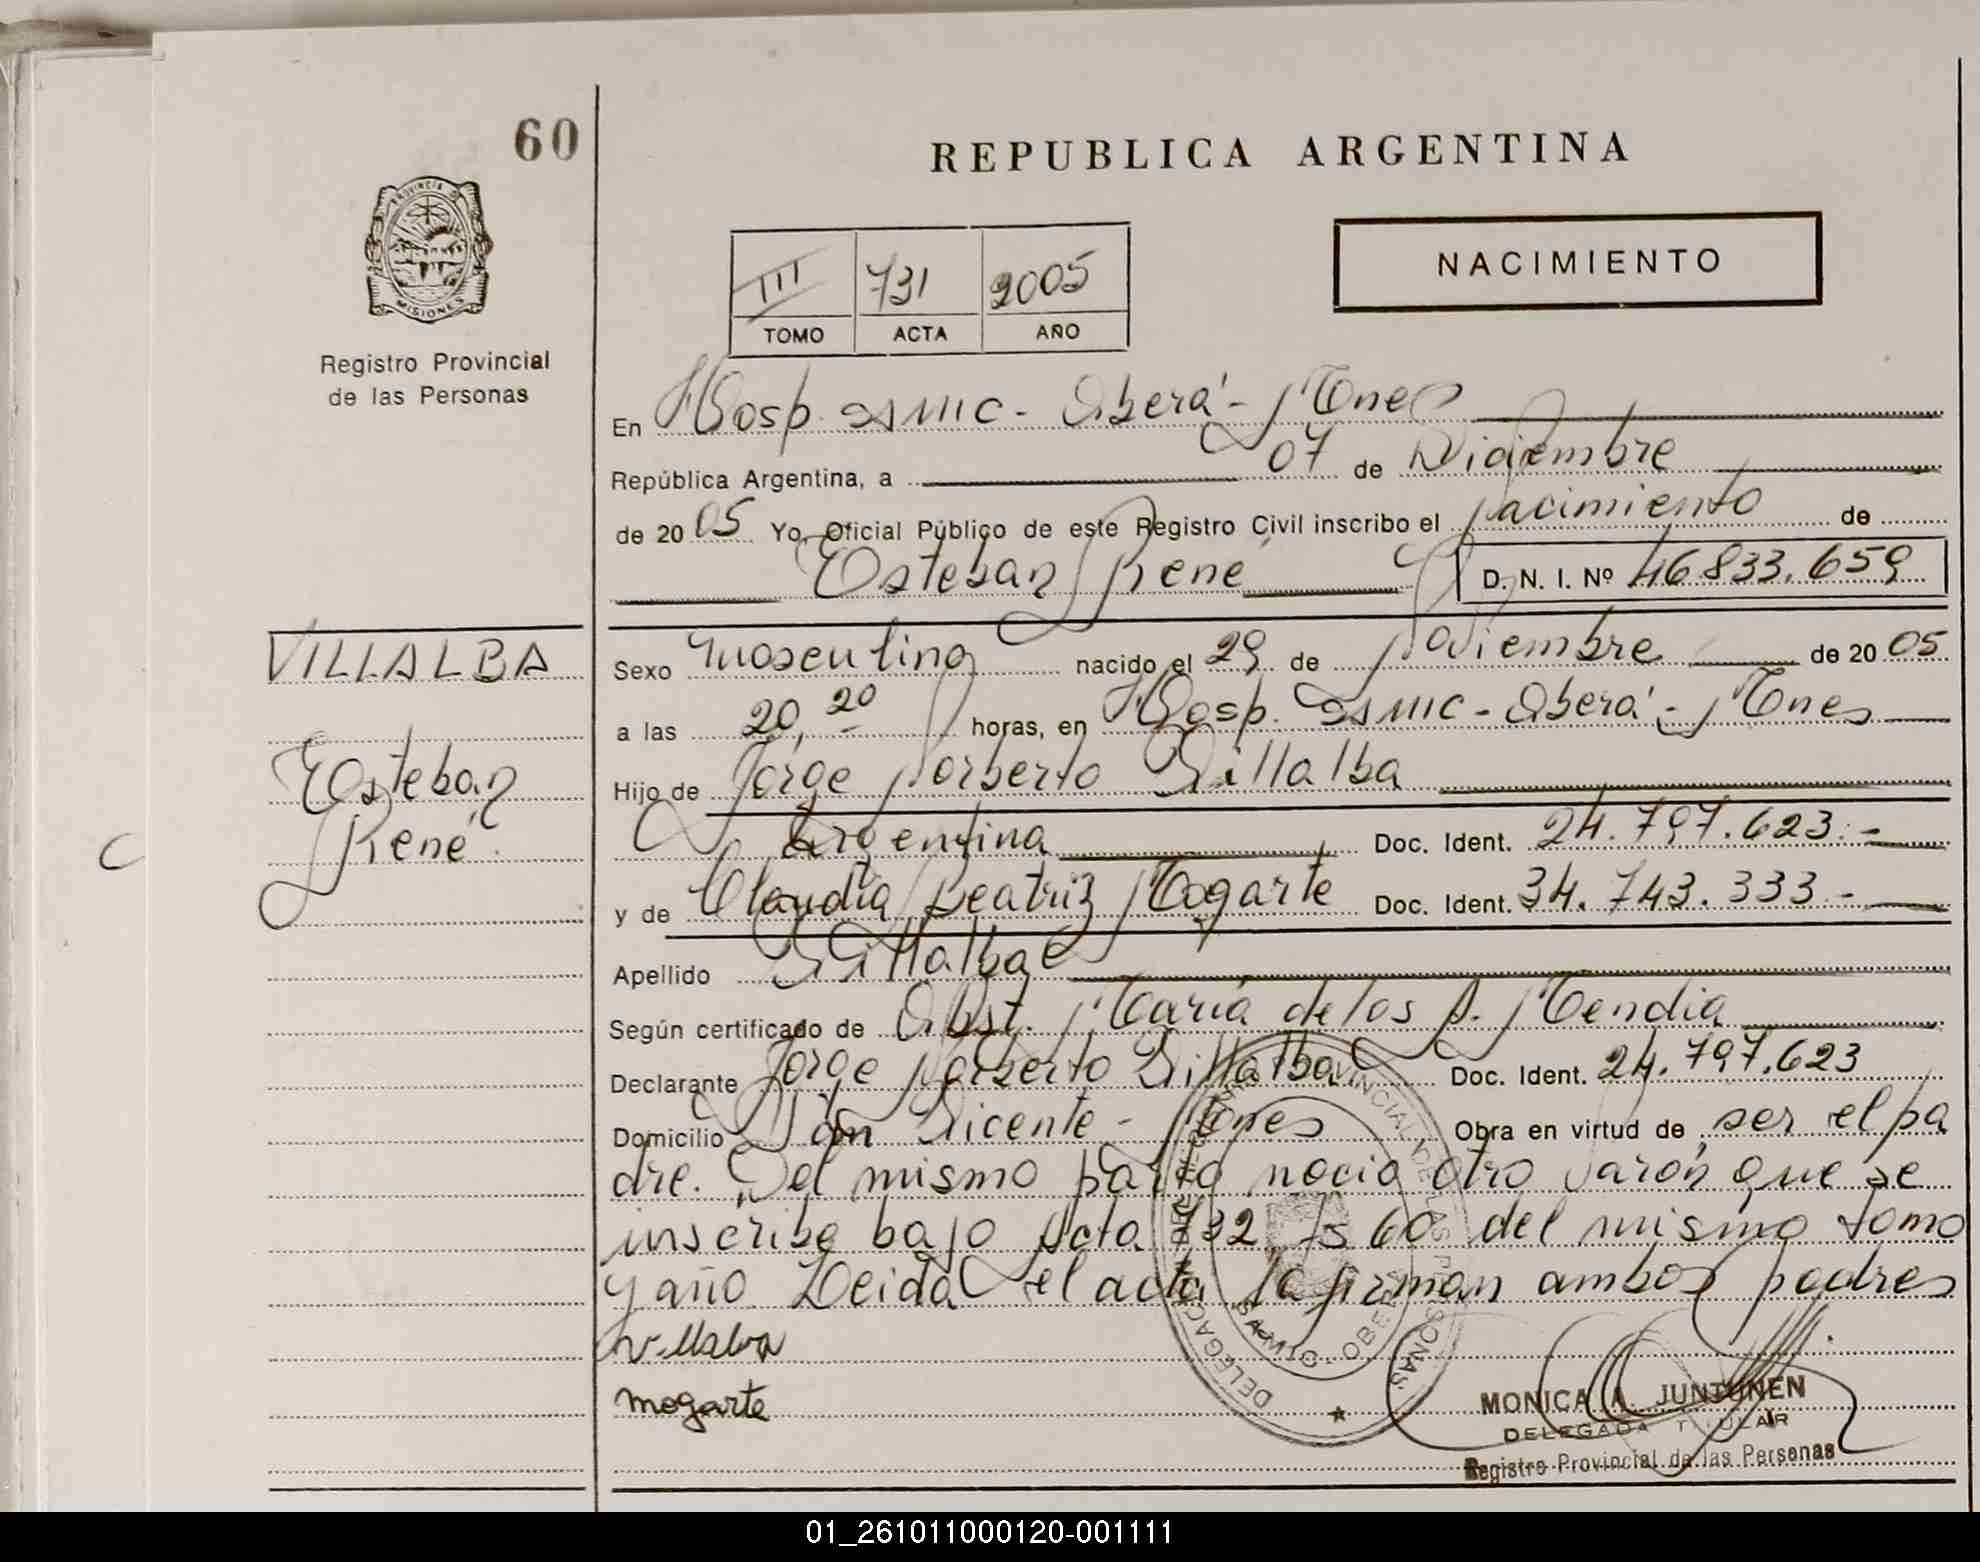 60
REPUBLICA ARGENTINA
PROVINCIA DE
MISIONES
NACIMIENTO
III 731 2005
TOMO ACTA AÑO
Registro Provincial
de las Personas
En Hosp. SAMIC - Oberá - Mnes
República Argentina, a 07 de Diciembre
de 2005 Yo, Oficial Público de este Registro Civil inscribo el nacimiento de
Esteban René D. N. I. Nº 46.833.659
VILLALBA
Esteban
René
Sexo masculino nacido el 29 de Noviembre de 2005
a las 20,20 horas, en Hosp. SAMIC - Oberá - Mnes
Hijo de Jorge Norberto Villalba
Argentina Doc. Ident. 24.797.623.-
y de Claudia Beatriz Mogarte Doc. Ident. 34.743.333-
Apellido Villalba
Según certificado de Obst. María de los A. Mendia
Declarante Jorge Norberto Villalba Doc. Ident. 24.797.623
Domicilio San Vicente - Mnes Obra en virtud de ser el pa
dre. Del mismo parto nació otro varón que se
inscribe bajo Acta 732 fs 60 del mismo tomo
y año Leida el acta la firman ambos padres
Villalva
mogarte
MONICA A. JUNTUNEN
DELEGADA TITULAR
Registro Provincial de las Personas
01_261011000120-001111